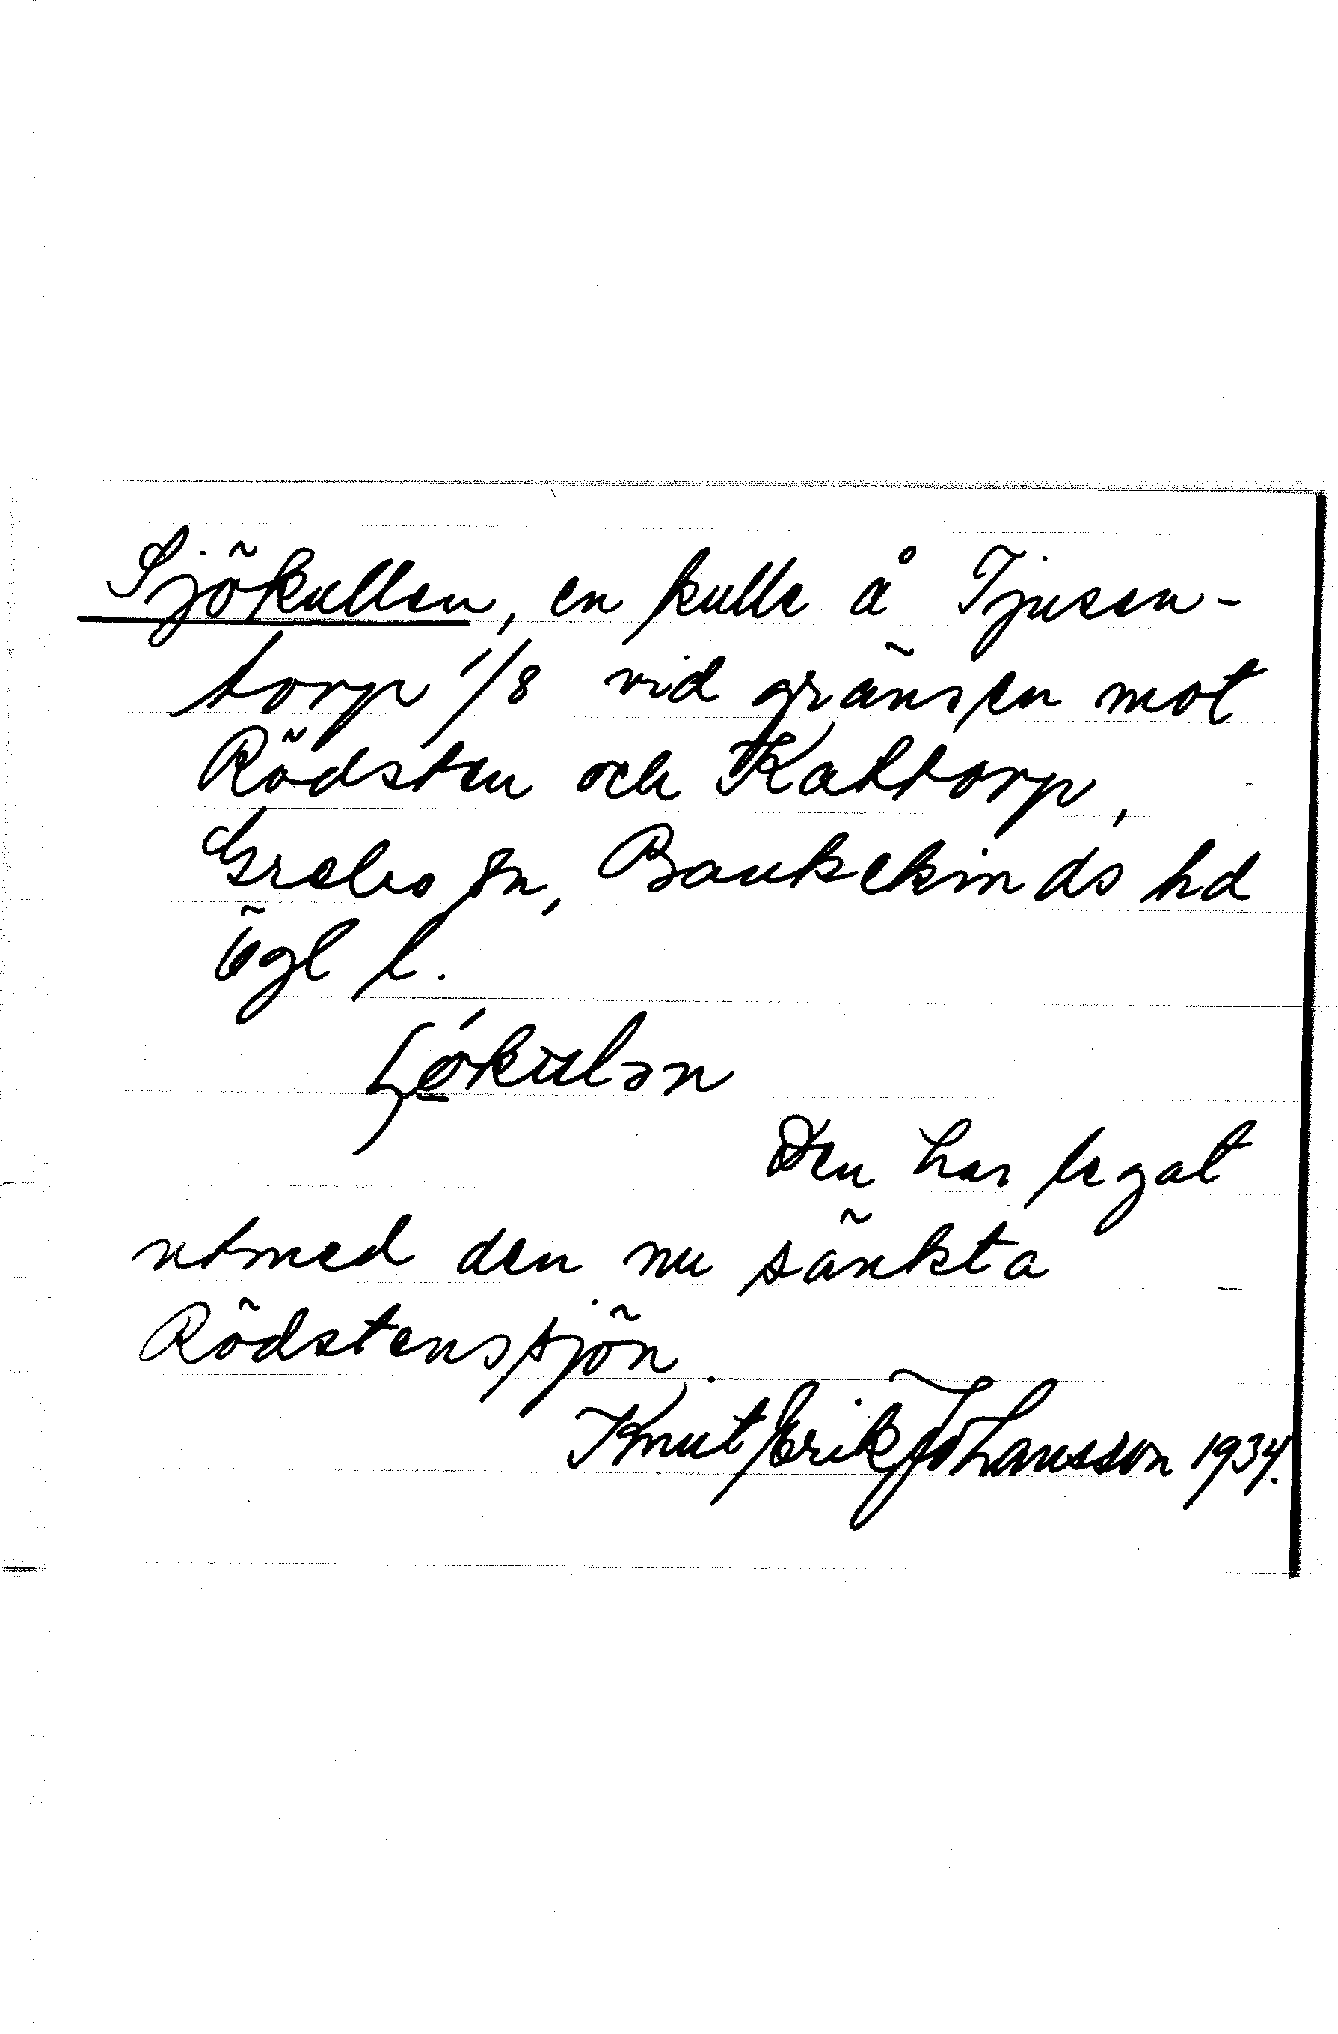 Sjökullen, en kulle å Tjusen-
torp 1/8 vid gränsen mot
Rödsten och Kattorp,
Grebo sn, Bankekinds hd
Ögl l.
Den har legat
utmed den nu sänkta
Rödstenssjön.
Knut Erik Johansson 1934.